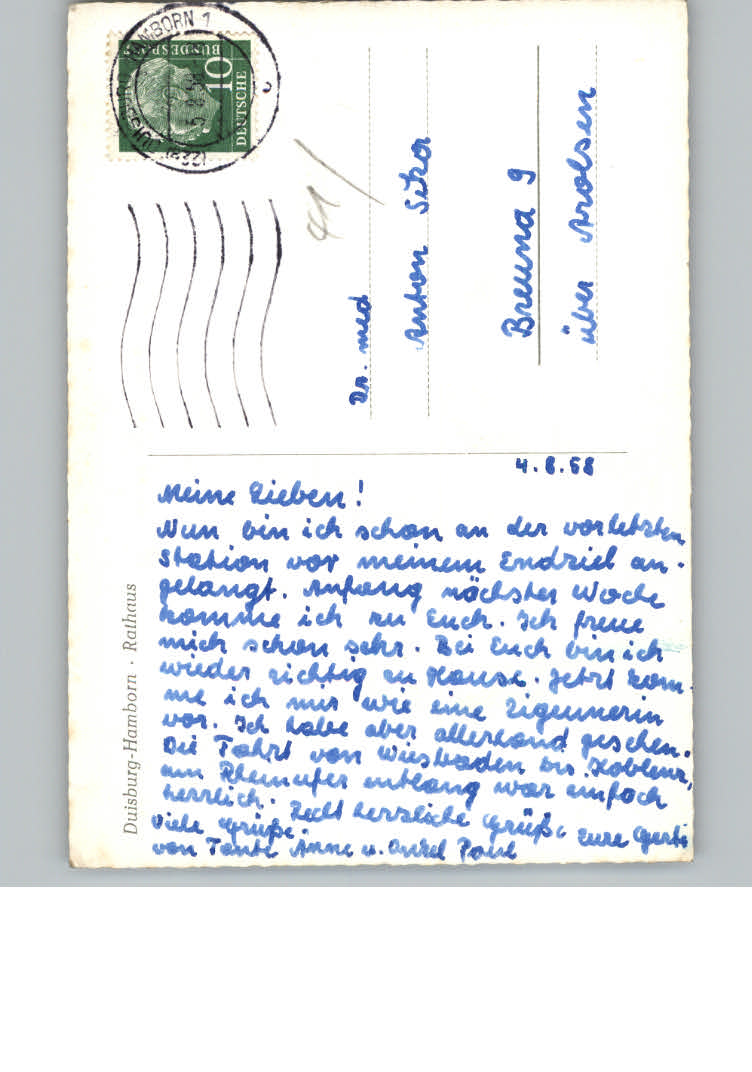 4.8.58
Meine Lieben!
Nun bin ich schon an der vorletzten
Station vor meinem Endziel an-
gelangt. Anfang nächster Woche
komme ich zu Euch. Ich freue
mich schon sehr. Bei Euch bin ich
wieder richtig zu Hause. Jetzt kom-
me ich mir wie eine Zigeunerin
vor. Ich habe aber allerhand gesehen.
Die Fahrt von Wiesbaden bis Koblenz,
am Rheinufer entlang war einfach
herrlich. Recht herzliche Grüße Eure Gerti
Viele Grüße
von Tante Anne u. Onkel Paul
Dr. med
Anton Sikor
Breuna 9
über Arolsen
Duisburg-Hamborn · Rathaus
DEUTSCHE
BUNDESPOST
10
HAMBORN 1
41